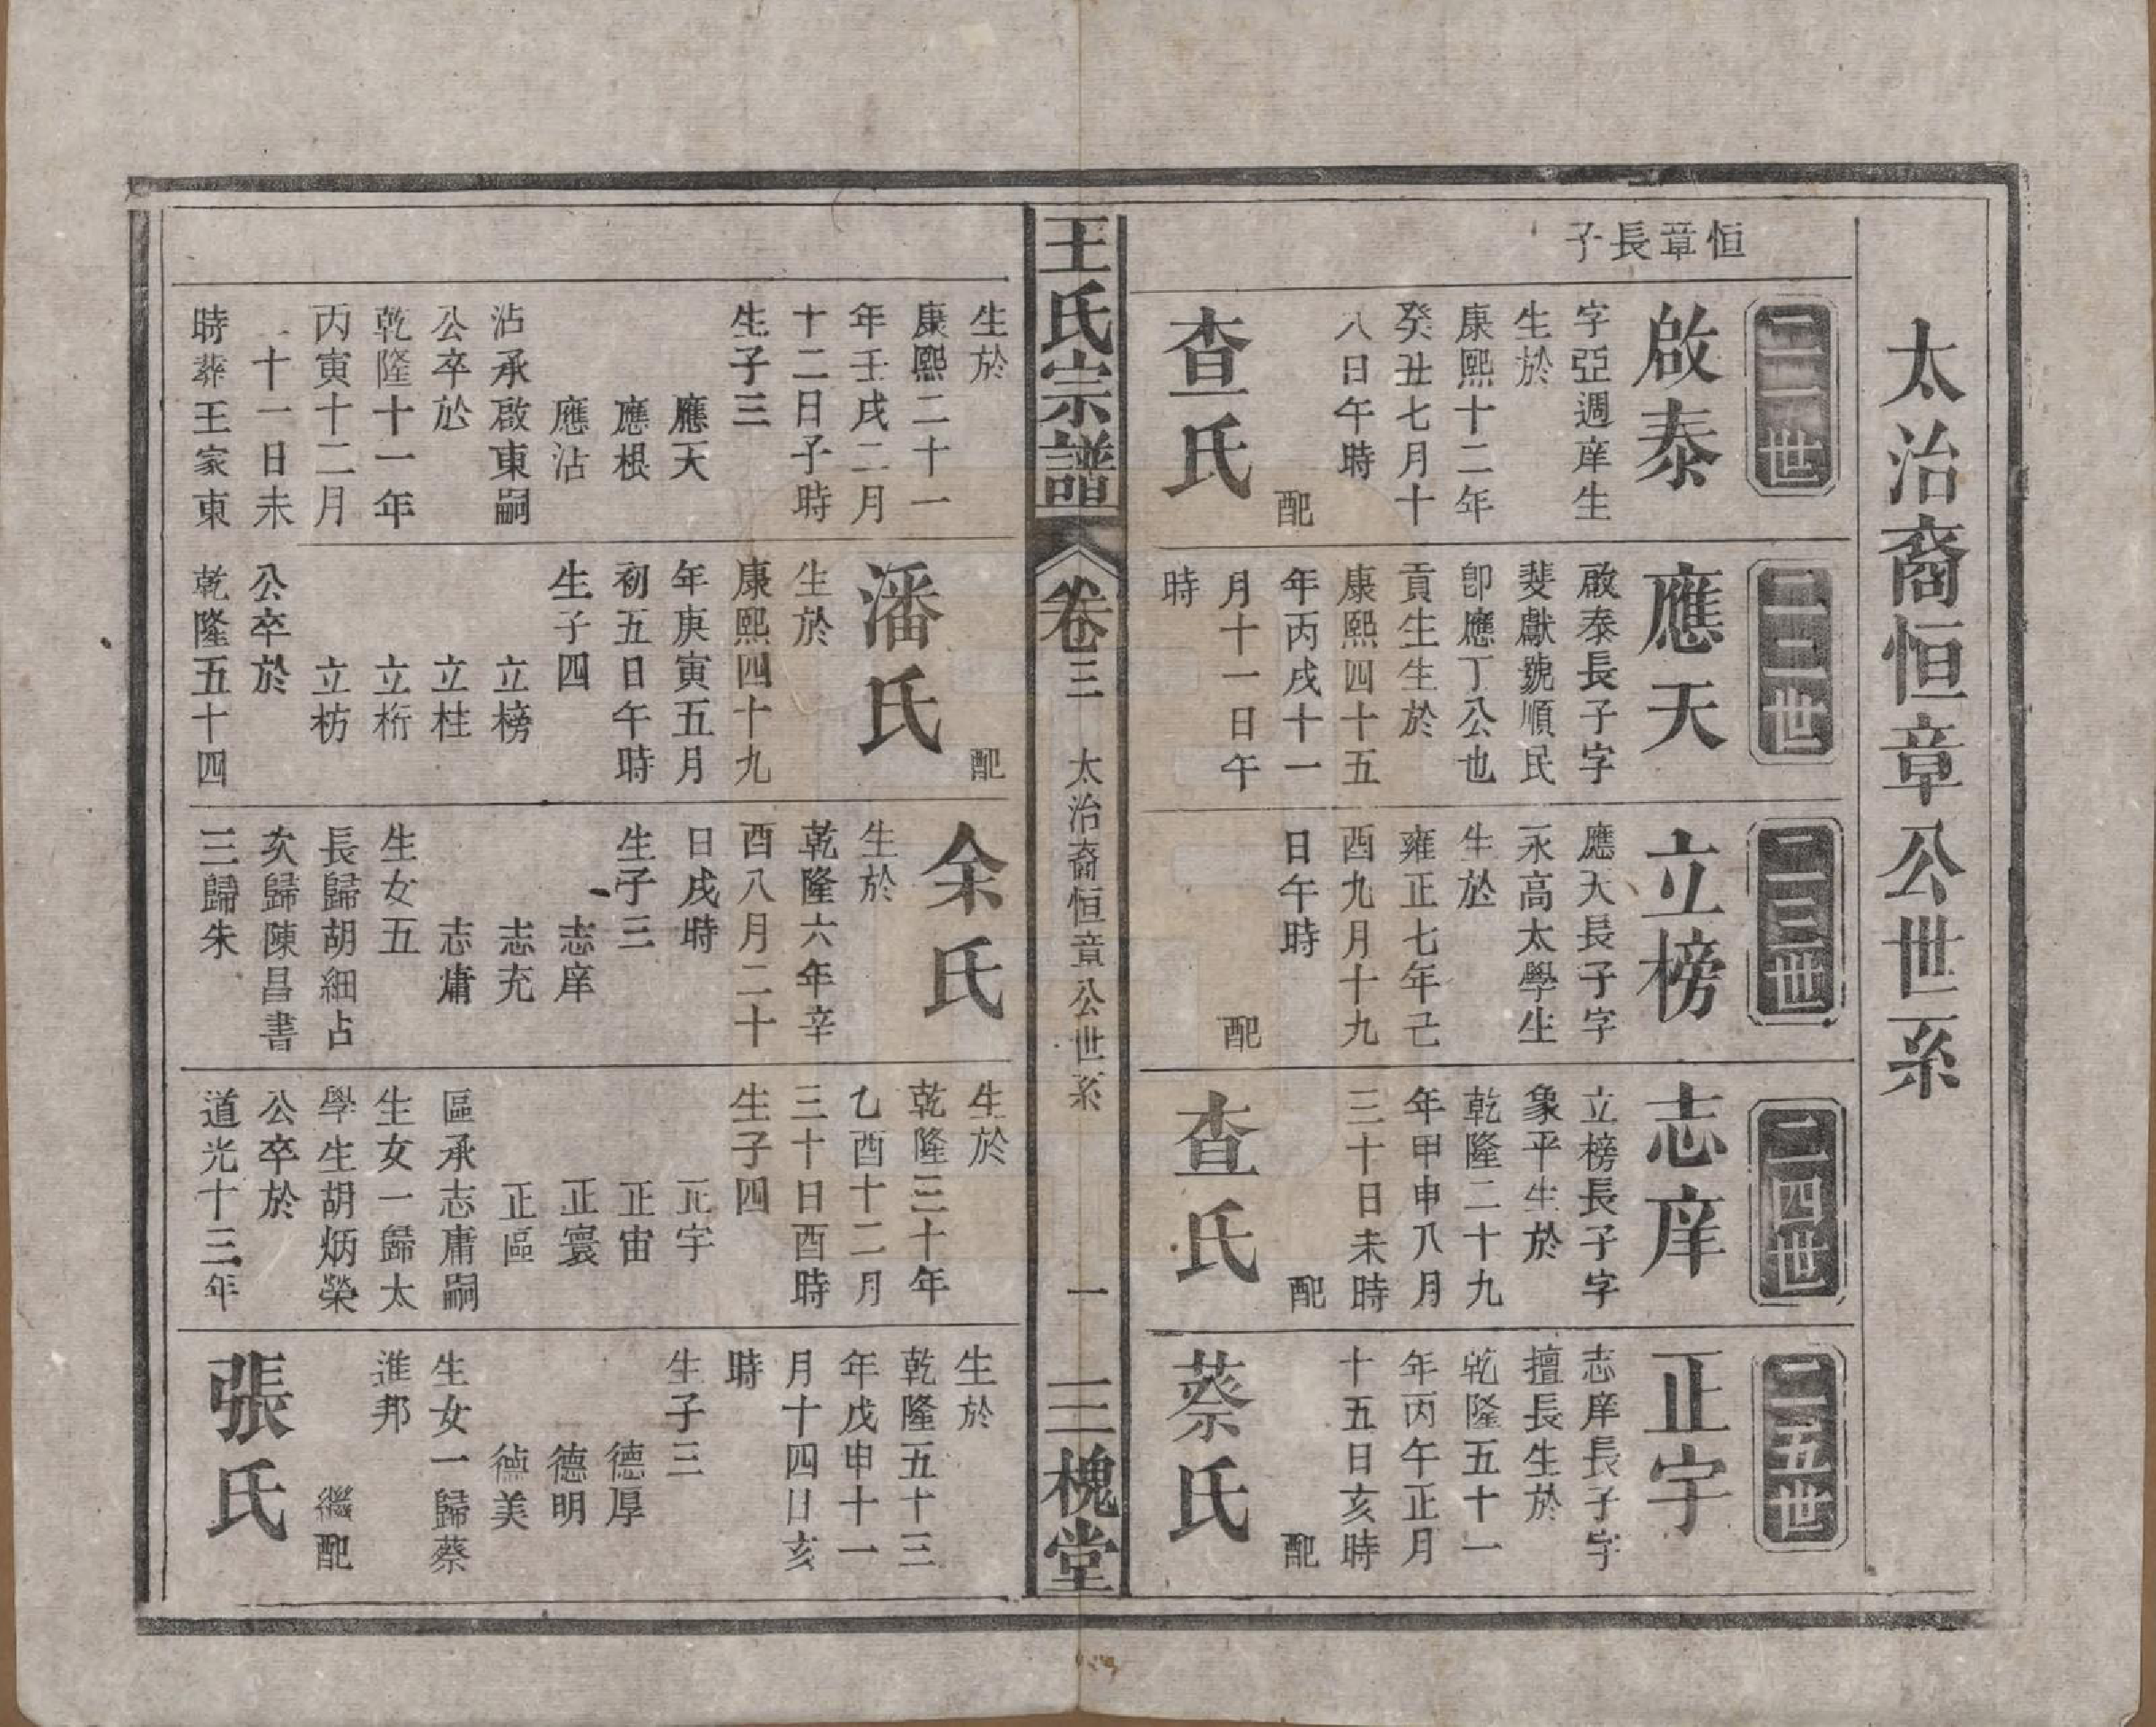 太治裔恒章公世系
恒章長子
二一世
啟泰
字亞週庠生
生於
康熙十二年
癸丑七月十
八日午時
配
查氏
二二世
應天
啟泰長子字
斐獻號順民
卽應丁公也
貢生生於
康熙四十五
年丙戌十一
月十一日午
時
二三世
立榜
應天長子字
永高太學生
生於
雍正七年己
酉九月十九
日午時
配
二四世
志庠
立榜長子字
象平生於
乾隆二十九
年甲申八月
三十日未時
配
查氏
二五世
正宇
志庠長子字
擅長生於
乾隆五十一
年丙午正月
十五日亥時
配
蔡氏
王氏宗譜
卷三
太治裔恒章公世系
一
三槐堂
生於
康熙二十一
年壬戌二月
十二日子時
生子三
應天
應根
應沾
沾承啟東嗣
公卒於
乾隆十一年
丙寅十二月
二十一日未
時葬王家東
配
潘氏
生於
康熙四十九
年庚寅五月
初五日午時
生子四
立榜
立柱
立桁
立枋
公卒於
乾隆五十四
余氏
生於
乾隆六年辛
酉八月二十
日戌時
生子三
志庠
志充
志庸
生女五
長歸胡細占
次歸陳昌書
三歸朱
生於
乾隆三十年
乙酉十二月
三十日酉時
生子四
正宇
正宙
正寰
正區
區承志庸嗣
生女一歸太
學生胡炳榮
公卒於
道光十三年
生於
乾隆五十三
年戊申十一
月十四日亥
時
生子三
德厚
德明
德美
生女一歸蔡
進邦
繼配
張氏